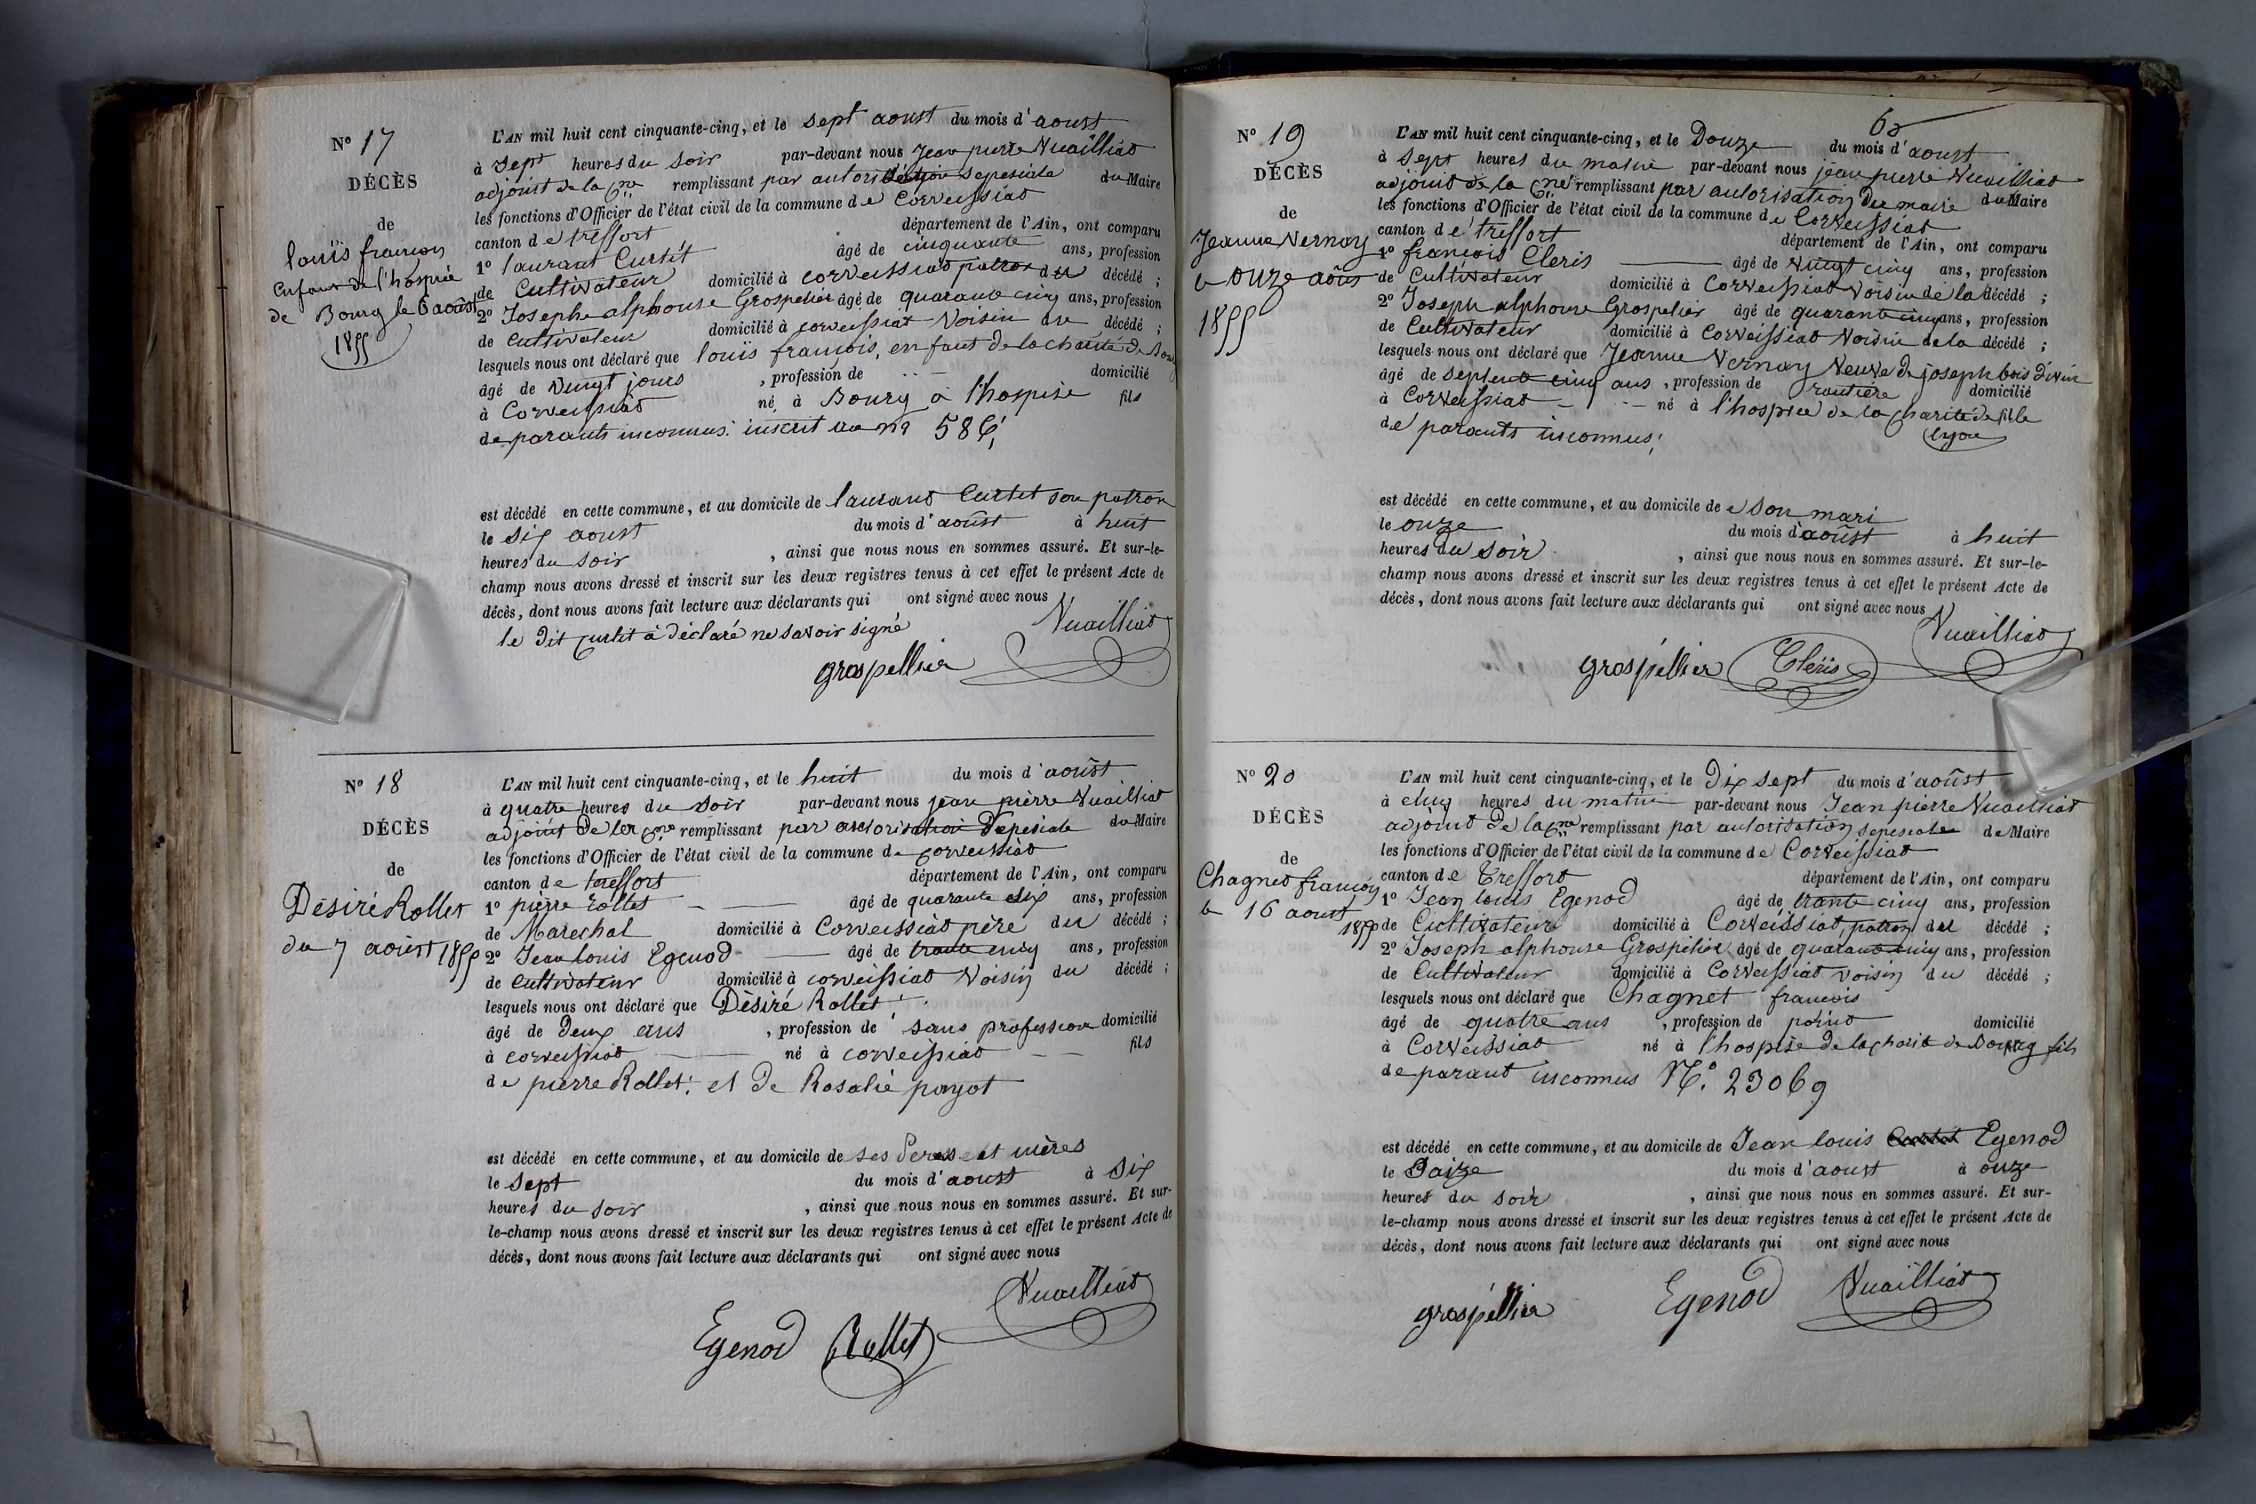 N° 17
DÉCÈS
de
louis francois
enfant de l'hospice
de Bourg le 6 aoust
1855
L'AN mil huit cent cinquante-cinq, et le sept aoust du mois d'aoust
à sept heures du soir par-devant nous Jean pierre Vuailliat
adjoint de la Cne remplissant par autorisation sepesiale du Maire
les fonctions d'Officier de l'état civil de la commune de Corveissiat
canton de treffort département de l'Ain, ont comparu
1° laurant Curtet âgé de cinquante ans, profession
de Cultivateur domicilié à corveissiat patron du décédé ;
2° Joseph alphonse Grospelier âgé de quarante cinq ans, profession
de cultivateur domicilié à corveissiat Voisin du décédé ;
lesquels nous ont déclaré que louïs francois, enfant de la charité de Bourg
âgé de vingt jours , profession de domicilié
à Corveissiat né à Bourg à l'hospise fils
de parants inconnus. inscrit au n°
est décédé en cette commune, et au domicile de laurant Curtet son patron
le six aoust du mois d'aoust à huit
heures du soir , ainsi que nous nous en sommes assuré. Et sur-le-
champ nous avons dressé et inscrit sur les deux registres tenus à cet effet le présent Acte de
décès, dont nous avons fait lecture aux déclarants qui ont signé avec nous
le dit Curtet à déclaré ne savoir signé
Vuailliat
grospellier
N° 18
DÉCÈS
de
Désiré Rollet
du 7 aoust 1855
L'AN mil huit cent cinquante-cinq, et le huit du mois d'aoust
à quatre heures du soir par-devant nous jean pierre Vuailliat
adjoint de la Cne remplissant par autorisation sepesiale du Maire
les fonctions d'Officier de l'état civil de la commune de corveissiat
canton de treffort département de l'Ain, ont comparu
1° pierre rollet âgé de quarante six ans, profession
de Marechal domicilié à Corveissiat père du décédé ;
2° Jean louis Egenod âgé de trante cinq ans, profession
de cultivateur domicilié à corveissiat Voisin du décédé ;
lesquels nous ont déclaré que Désiré Rollet
âgé de deux ans , profession de sans profession domicilié
à corveissiat né à corveissiat fils
de pierre Rollet. et de Rosalie payot
est décédé en cette commune, et au domicile de ses Peres et mères
le sept du mois d'aoust à six
heures du soir , ainsi que nous nous en sommes assuré. Et sur-
le-champ nous avons dressé et inscrit sur les deux registres tenus à cet effet le présent Acte de
décès, dont nous avons fait lecture aux déclarants qui ont signé avec nous
Vuailliat
Egenod Rollet
N° 19
DÉCÈS
de
Jeanne Vernay
le onze aoust
1855
L'AN mil huit cent cinquante-cinq, et le Douze du mois d'aoust
à sept heures du matin par-devant nous jean pierre Vuailliat
adjoint de la Cne remplissant par autorisation du maire du Maire
les fonctions d'Officier de l'état civil de la commune de Corveissiat
canton de treffort département de l'Ain, ont comparu
1° francois Cleris âgé de vingt cinq ans, profession
de Cultivateur domicilié à Corveissiat voisin de la décédé ;
2° Joseph alphonse Grospelier âgé de quarante cinq ans, profession
de Cultivateur domicilié à Corveissiat Voisin de la décédé ;
lesquels nous ont déclaré que Jeanne Vernay Veuve de joseph bois divin
âgé de septente cinq ans , profession de rantiere domicilié
à Corveissiat né à l'hospice de la charité de fille
de parants inconnus; lyon
est décédé en cette commune, et au domicile de son mari
le onze du mois d'aoust à huit
heures du soir , ainsi que nous nous en sommes assuré. Et sur-le-
champ nous avons dressé et inscrit sur les deux registres tenus à cet effet le présent Acte de
décès, dont nous avons fait lecture aux déclarants qui ont signé avec nous
Vuailliat
grospellier Cléris
N° 20
DÉCÈS
de
Chagnet francois
le 16 aoust
1855
L'AN mil huit cent cinquante-cinq, et le Dix sept du mois d'aoust
à cinq heures du matin par-devant nous Jean pierre Vuailliat
adjoint de la Cne remplissant par autorisation sepesiale de Maire
les fonctions d'Officier de l'état civil de la commune de Corveissiat
canton de Treffort département de l'Ain, ont comparu
1° Jean louis Egenod âgé de trante cinq ans, profession
de Cultivateur domicilié à Corveissiat, patron du décédé ;
2° Joseph alphonse Grospelier âgé de quarante cinq ans, profession
de Cultivateur domicilié à Corveissiat voisin du décédé ;
lesquels nous ont déclaré que Chagnet francois
âgé de quatre ans , profession de point domicilié
à Corveissiat né à l'hospise de la charité de Bourg fils
de parant inconnus N° 23069
est décédé en cette commune, et au domicile de Jean louis Egenod
le Saize du mois d'aoust à onze
heures du soir , ainsi que nous nous en sommes assuré. Et sur-
le-champ nous avons dressé et inscrit sur les deux registres tenus à cet effet le présent Acte de
décès, dont nous avons fait lecture aux déclarants qui ont signé avec nous
grospellier Egenod Vuailliat